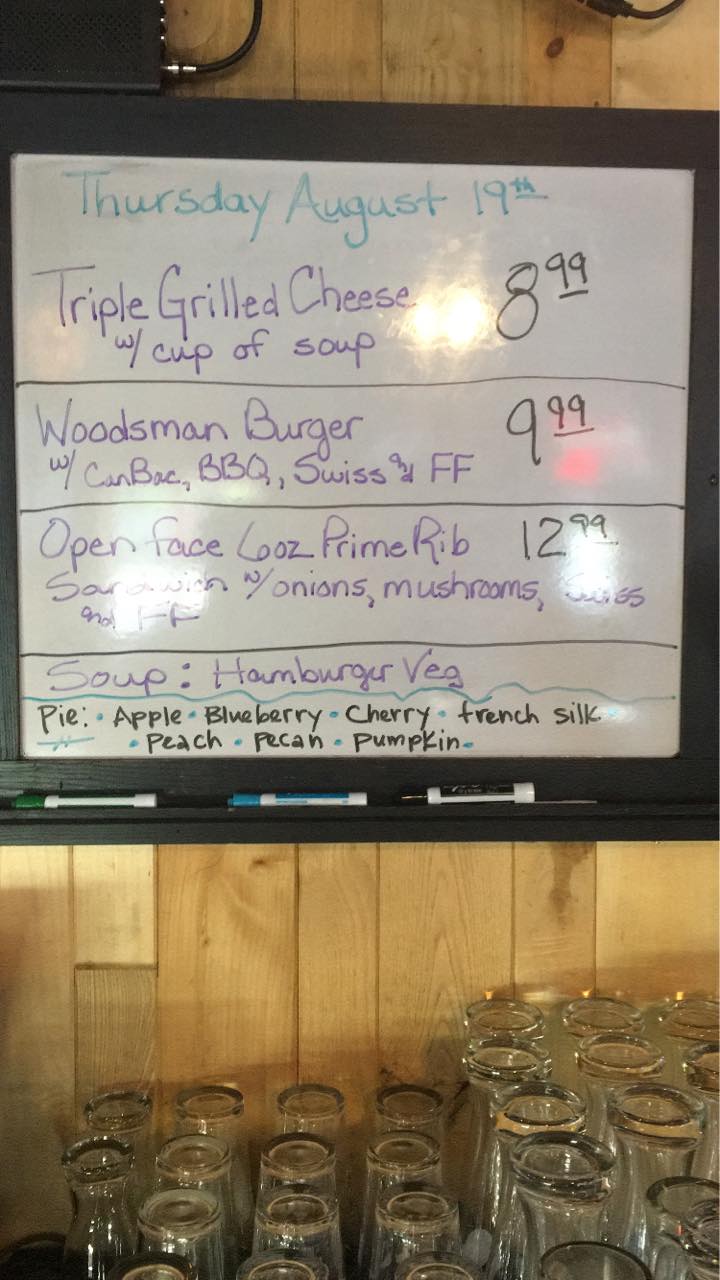 Thursday August 19th
Triple Grilled Cheese 8.99
w/ cup of soup
Woodsman Burger 9.99
w/ CanBac, BBQ, Swiss and FF
Open Face 6oz Prime Rib 12.99
Sandwich w/ onions, mushrooms, Swiss
and FF
Soup: Hamburger Veg
Pie: • Apple • Blueberry • Cherry • french silk •
• Peach • Pecan • Pumpkin •